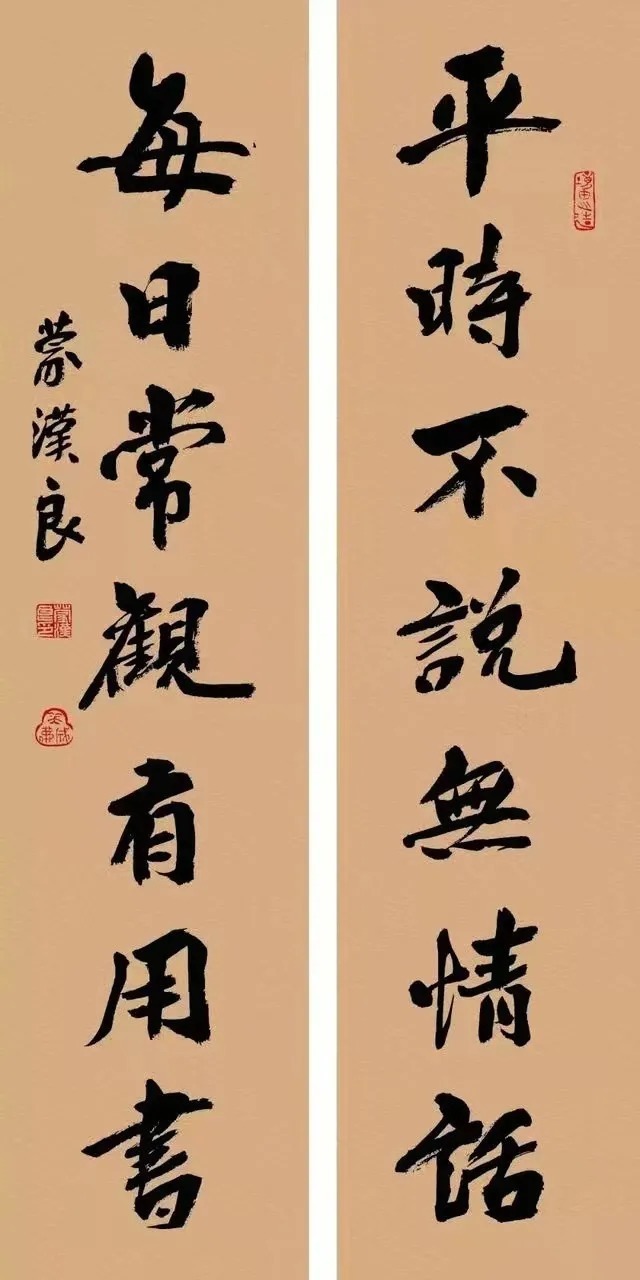 平時不説無情話
每日常觀有用書
蒙漢良